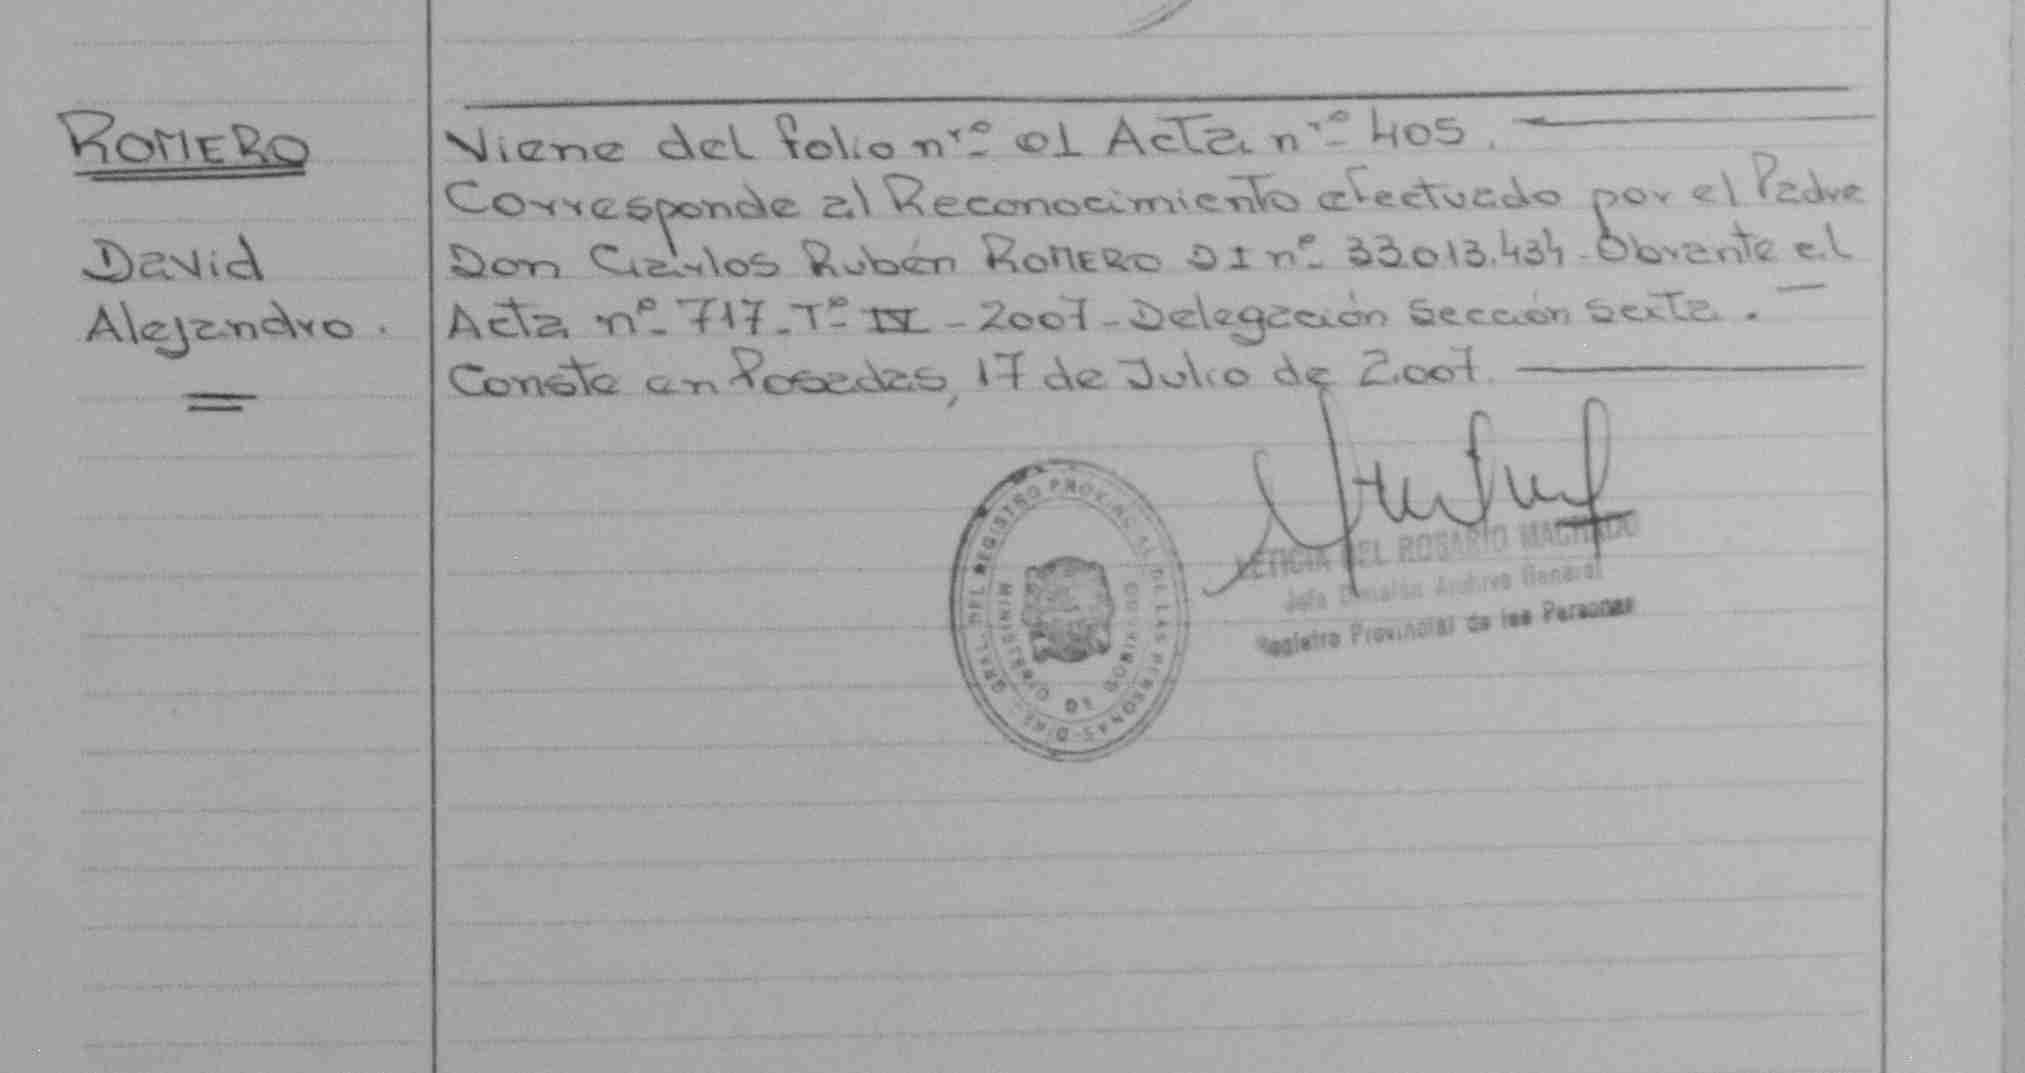 ROMERO
David
Alejandro.
Viene del folio nrº 01 Acta nrº 405.
Corresponde al Reconocimiento efectuado por el Padre
Don Carlos Rubén ROMERO DI nº 33.013.434 - Obrante el
Acta nº 717 - Tº IV - 2007 - Delegación Sección Sexta.
Conste en Posadas, 17 de Julio de 2.007.
GRAL. DEL REGISTRO PROVINCIAL DE LAS PERSONAS - DIRE
MINISTERIO DE GOBIERNO
LETICIA DEL ROSARIO MACHADO
Jefa División Archivo General
Registro Provincial de las Personas